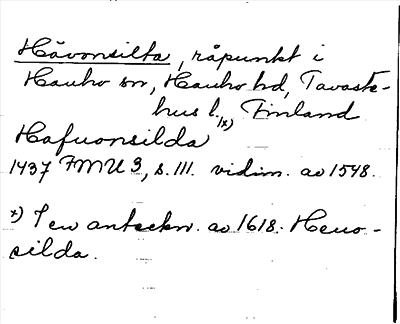 Hävonsilta, råpunkt i
Hauho sn, Hauho hd, Tavaste-
hus l. Finland
x)
Hafuonsilda
1437 FMU 3, s. 111. vidim. av 1548.
x) I en anteckn. av 1618: Heuo-
silda.